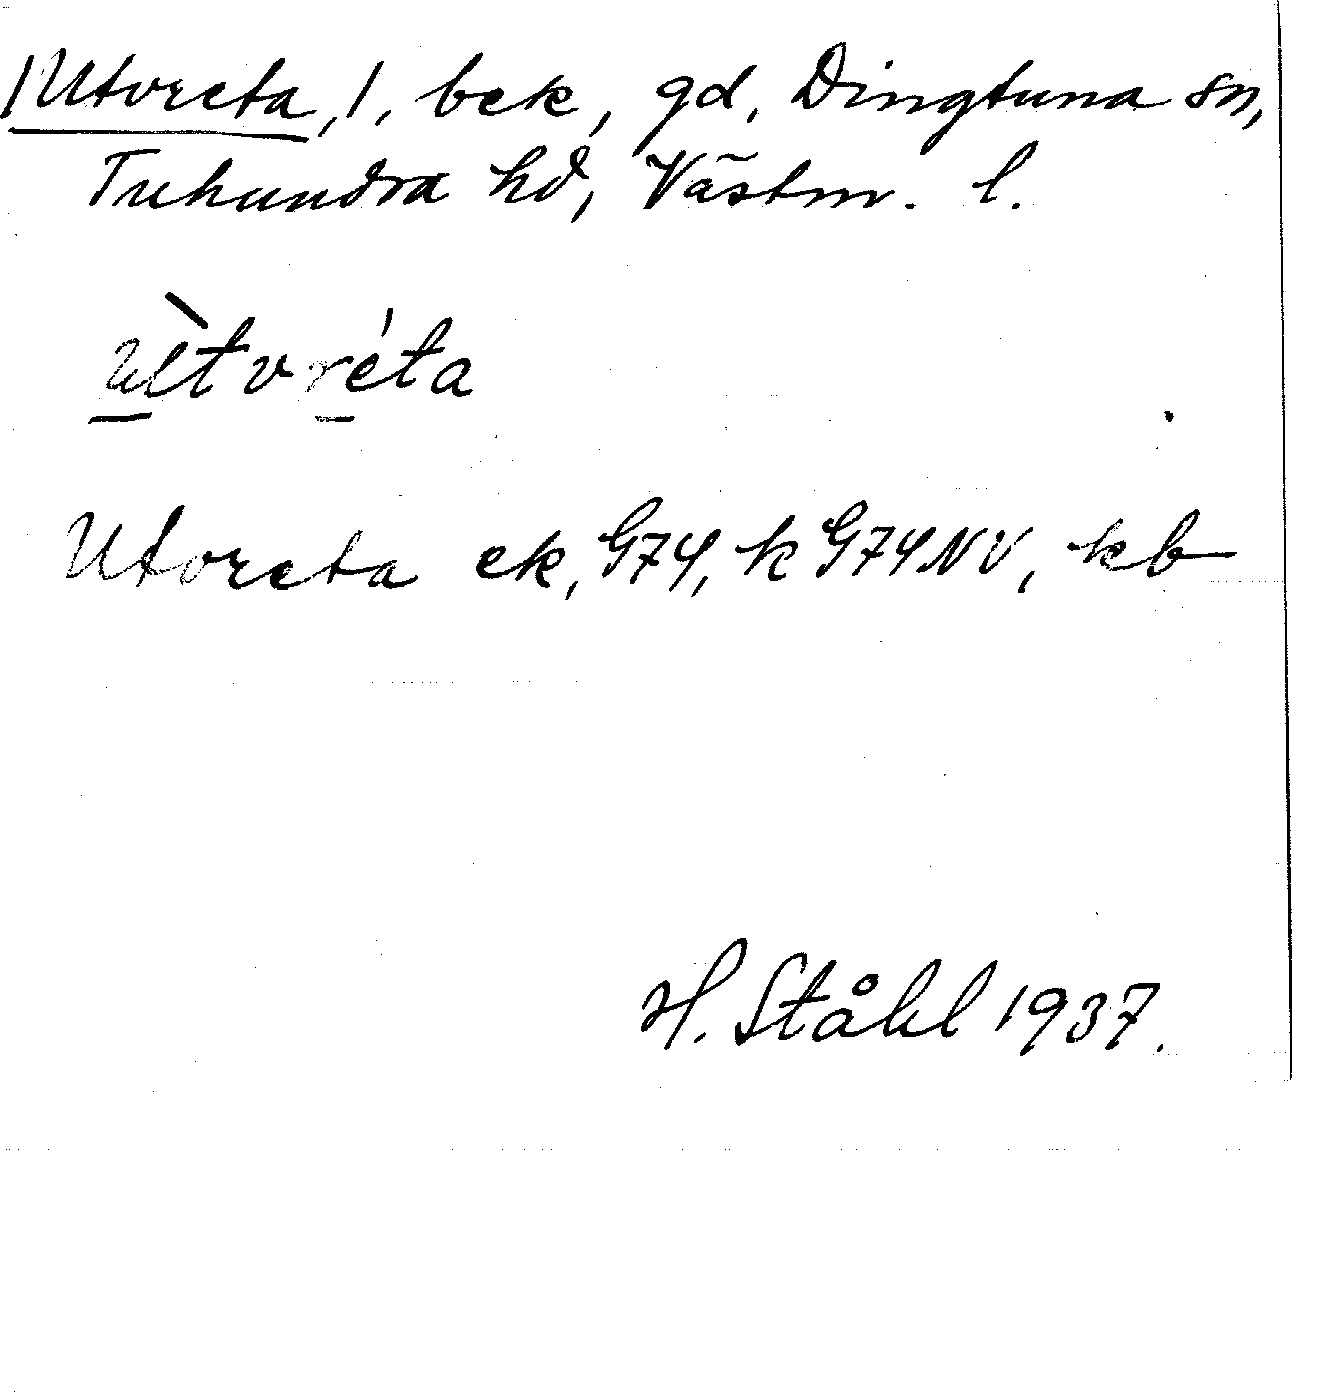 /Utvreta,/, bek, gd, Dingtuna sn,
Tuhundra hd, Västm. l.
ùtvréta
Utvreta ek, G74, k G74NV, kb
H. Ståhl 1937.